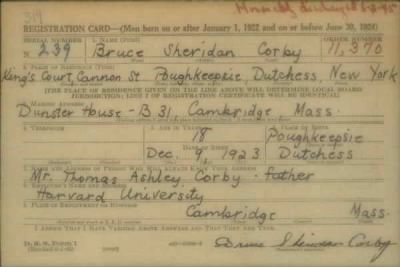 Honorably discharged
REGISTRATION CARD—(Men born on or after January 1, 1922 and on or before June 30, 1924)
SERIAL NUMBER 1. NAME (Print) ORDER NUMBER
N 239 Bruce Sheridan Corby 11,370
2. PLACE OF RESIDENCE (Print)
King's Court, Cannon St Poughkeepsie, Dutchess, New York
[THE PLACE OF RESIDENCE GIVEN ON THE LINE ABOVE WILL DETERMINE LOCAL BOARD
JURISDICTION; LINE 2 OF REGISTRATION CERTIFICATE WILL BE IDENTICAL]
3. MAILING ADDRESS
Dunster House - B 31 Cambridge Mass.
4. TELEPHONE 5. AGE IN YEARS 6. PLACE OF BIRTH
18 Poughkeepsie
DATE OF BIRTH
Dec. 9, 1923 Dutchess
7. NAME AND ADDRESS OF PERSON WHO WILL ALWAYS KNOW YOUR ADDRESS
Mr. Thomas Ashley Corby - father
8. EMPLOYER'S NAME AND ADDRESS
Harvard University
9. PLACE OF EMPLOYMENT OR BUSINESS
Cambridge Mass.
I AFFIRM THAT I HAVE VERIFIED ABOVE ANSWERS AND THAT THEY ARE TRUE.
D. S. S. Form 1
Bruce Sheridan Corby